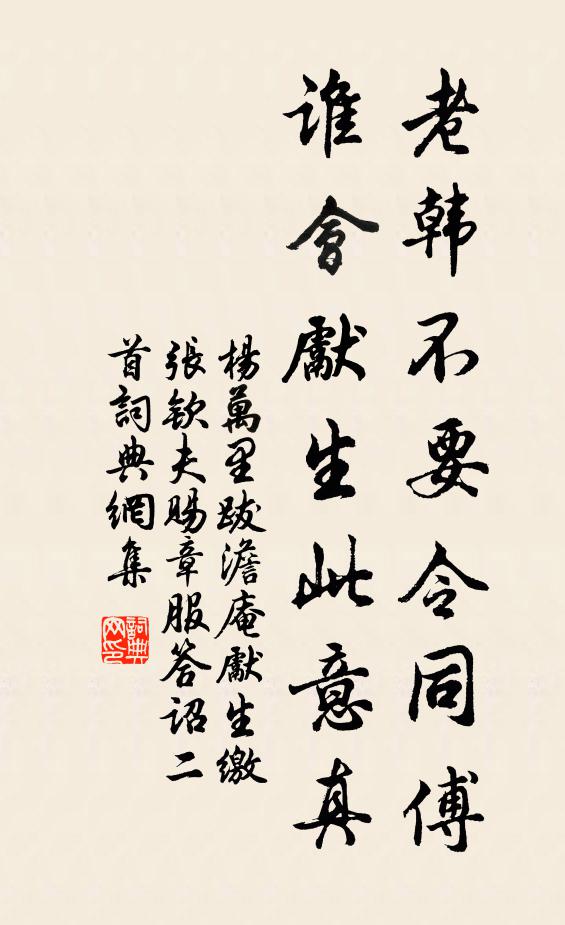 老韩不要令同傅
谁會獻生此意真
楊萬里跋澹庵獻生缴
張钦夫賜章服答诏二
首詞典網集
詞典
网印